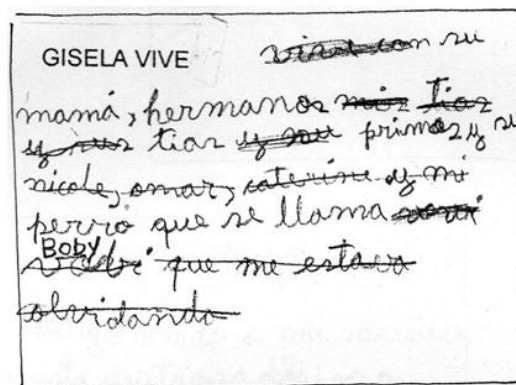 GISELA VIVE con su
mamá, hermanos mis tias
y sus tias y su primos y su
nicole, omar, caterine y mi
perrio que se llama
Boby que me estava
olvidando